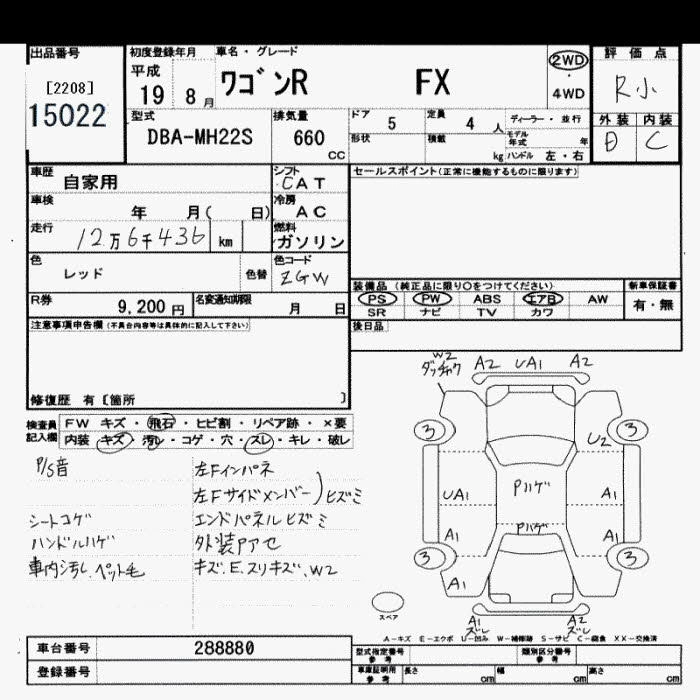 出品番号
[2208]
15022
初度登録年月
平成
19 8 月
車名・グレード
ワゴンR FX
2WD
・
4WD
評価点
R小
外装 内装
D C
型式
DBA-MH22S
排気量
660
CC
ドア 5
定員 4 人
ディーラー・並行
形状
積載
kg
モデル
年式 年
ハンドル 左・右
車歴
自家用
シフト
CAT
セールスポイント(正常に機能するものに限ります)
車検
年 月( 日)
冷房
AC
走行
12万6千436 km
燃料
ガソリン
色
レッド
色替
色コード
ZGW
装備品 (純正品に限り〇をつけてください)
PS PW ABS エアB AW
SR ナビ TV カワ
新車保証書
有・無
R券
9,200 円
名変通知期限
月 日
後日品
注意事項申告欄 (不具合内容等は具体的に記入して下さい)
修復歴 有 [箇所 ]
検査員
記入欄
FW キズ・飛石・ヒビ割・リペア跡・×要
内装 キズ・汚レ・コゲ・穴・スレ・キレ・破レ
P/S音
シートコゲ
ハンドルハゲ
車内汚レ、ペット毛
左Fインパネ
左Fサイドメンバー)ヒズミ
エンドパネルヒズミ
キズ、E、スリキズ、W2
W2
A2 UA1 A2
3 3
U2
Pハゲ
UA1 A1
Pハゲ
A1 A1
3 3
A1 A1
スペア
A1
ズレ
A2
ズレ
A-キズ E-エクボ U-凹み W-補修跡 S-サビ C-腐食 XX-交換済
車台番号 288880
登録番号
型式指定番号
参考
類別区分番号
参考
車庫証明用
参考
長さ cm 幅 cm 高さ cm